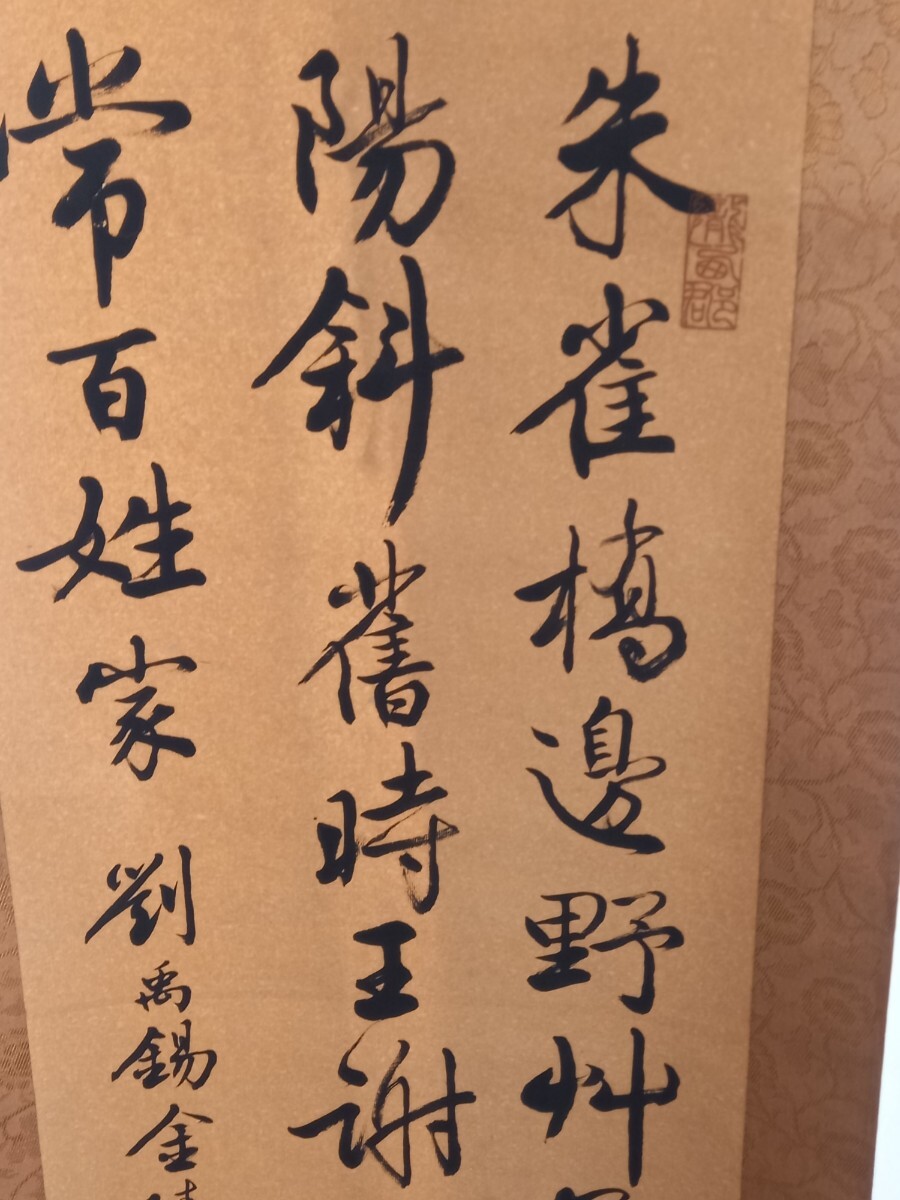 朱雀橋邊野艸
陽斜舊時王謝
常百姓家 劉禹錫金